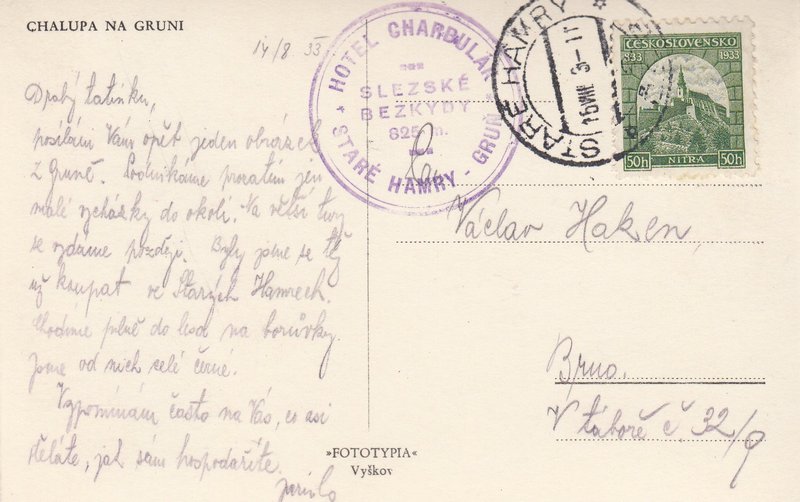 CHALUPA NA GRUNI
14/8 33
Drahý tatínku,
posílám Vám opět jeden obrázek
z Gruně. Podnikáme prozatím jen
malé vycházky do okolí. Na větší tury
se vydáme později. Byly jsme se též
už koupat ve Starých Hamrech.
Chodíme pilně do lesa na borůvky.
Jsme od nich celé černé.
Vzpomínám často na Vás, co asi
děláte, jak sám hospodaříte.
HOTEL CHARBULÁK
SLEZSKÉ
BEZKYDY
825 m.
STARÉ HAMRY - GRUŇ
STARÉ HAMRY
ČESKOSLOVENSKO
833 1933
NITRA
50h 50h
Václav Haken,
Brno.
V táboře č. 32/9
»FOTOTYPIA«
Vyškov